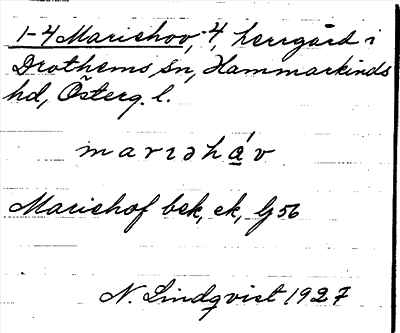 1-4 Mariehov, 4, herrgård i
Drothems sn, Hammarkinds
hd, Österg. l.
marɩəhá̱v
Mariehof bek, ek, Gj 56
N. Lindqvist 1927